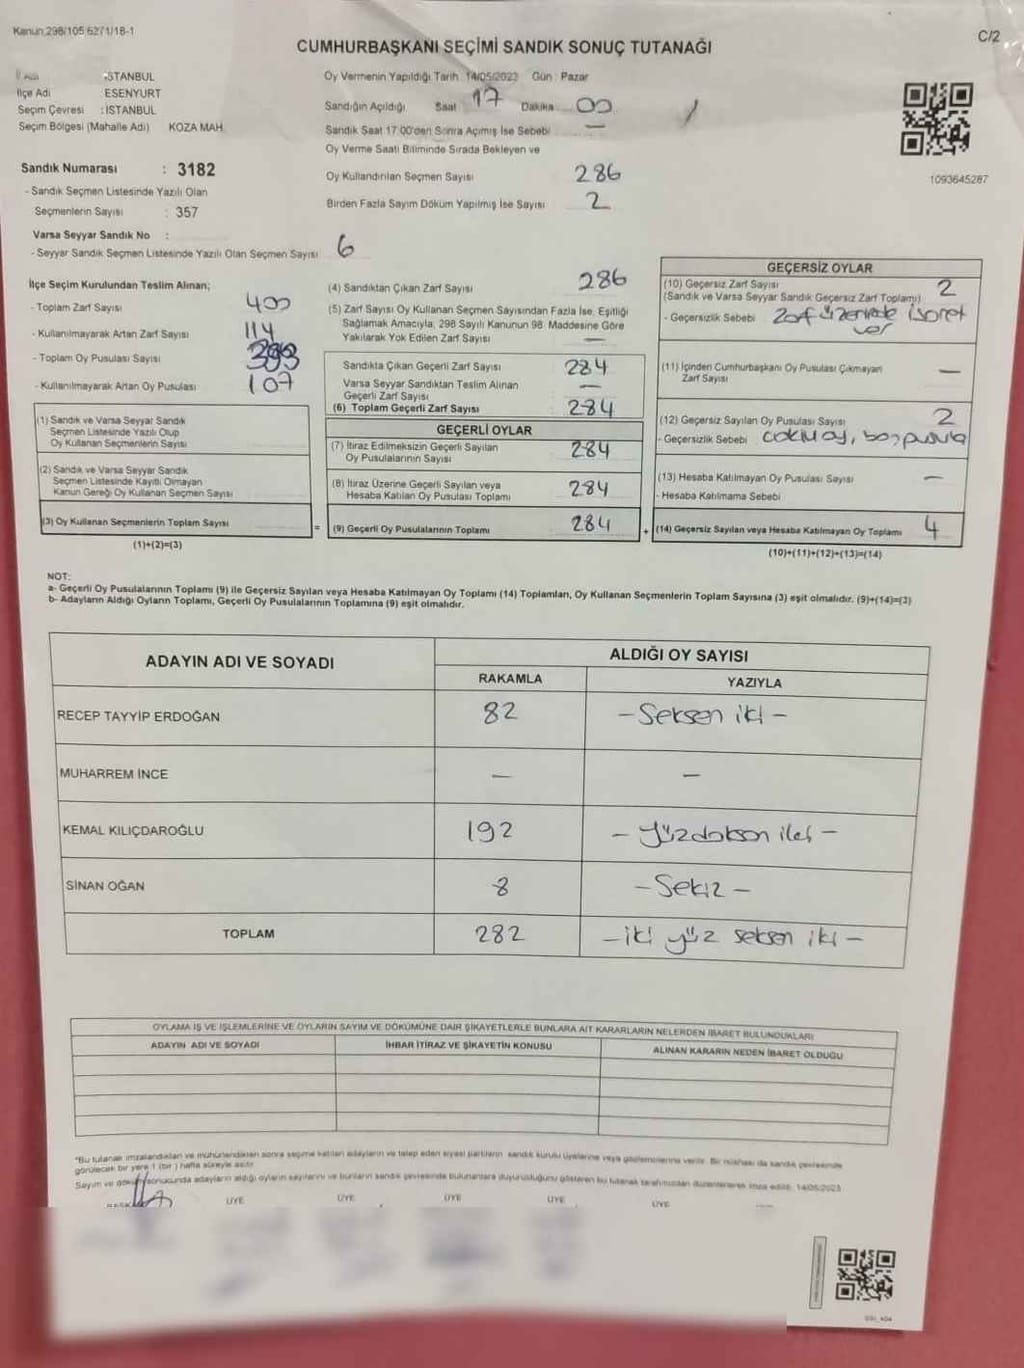 Kanun 298/105 6271/18-1
C/2
CUMHURBAŞKANI SEÇİMİ SANDIK SONUÇ TUTANAĞI
İSTANBUL
İlçe Adı ESENYURT
Seçim Çevresi : İSTANBUL
Seçim Bölgesi (Mahalle Adı) KOZA MAH.
Sandık Numarası : 3182
- Sandık Seçmen Listesinde Yazılı Olan
Seçmenlerin Sayısı : 357
Varsa Seyyar Sandık No :
- Seyyar Sandık Seçmen Listesinde Yazılı Olan Seçmen Sayısı 6
Oy Vermenin Yapıldığı Tarih 14/05/2023 Gün : Pazar
Sandığın Açıldığı Saat 17 Dakika 00
Sandık Saat 17:00'den Sonra Açılmış İse Sebebi —
Oy Verme Saati Bitiminde Sırada Bekleyen ve
Oy Kullandırılan Seçmen Sayısı 286
Birden Fazla Sayım Döküm Yapılmış İse Sayısı 2
1093645287
İlçe Seçim Kurulundan Teslim Alınan;
- Toplam Zarf Sayısı 400
- Kullanılmayarak Artan Zarf Sayısı 114
- Toplam Oy Pusulası Sayısı
- Kullanılmayarak Artan Oy Pusulası 107
(1) Sandık ve Varsa Seyyar Sandık
Seçmen Listesinde Yazılı Olup
Oy Kullanan Seçmenlerin Sayısı
(2) Sandık ve Varsa Seyyar Sandık
Seçmen Listesinde Kayıtlı Olmayan
Kanun Gereği Oy Kullanan Seçmen Sayısı
(3) Oy Kullanan Seçmenlerin Toplam Sayısı
(1)+(2)=(3)
(4) Sandıktan Çıkan Zarf Sayısı 286
(5) Zarf Sayısı Oy Kullanan Seçmen Sayısından Fazla İse, Eşitliği
Sağlamak Amacıyla, 298 Sayılı Kanunun 98. Maddesine Göre
Yakılarak Yok Edilen Zarf Sayısı —
Sandıkta Çıkan Geçerli Zarf Sayısı 284
Varsa Seyyar Sandıktan Teslim Alınan
Geçerli Zarf Sayısı —
(6) Toplam Geçerli Zarf Sayısı 284
GEÇERLİ OYLAR
(7) İtiraz Edilmeksizin Geçerli Sayılan
Oy Pusulalarının Sayısı 284
(8) İtiraz Üzerine Geçerli Sayılan veya
Hesaba Katılan Oy Pusulası Toplamı 284
= (9) Geçerli Oy Pusulalarının Toplamı 284
GEÇERSİZ OYLAR
(10) Geçersiz Zarf Sayısı 2
(Sandık ve Varsa Seyyar Sandık Geçersiz Zarf Toplamı)
- Geçersizlik Sebebi Zarf üzerinde işaret
var
(11) İçinden Cumhurbaşkanı Oy Pusulası Çıkmayan
Zarf Sayısı —
(12) Geçersiz Sayılan Oy Pusulası Sayısı 2
- Geçersizlik Sebebi çoklu oy, boş pusula
(13) Hesaba Katılmayan Oy Pusulası Sayısı —
- Hesaba Katılmama Sebebi
+ (14) Geçersiz Sayılan veya Hesaba Katılmayan Oy Toplamı 4
(10)+(11)+(12)+(13)=(14)
NOT:
a- Geçerli Oy Pusulalarının Toplamı (9) ile Geçersiz Sayılan veya Hesaba Katılmayan Oy Toplamı (14) Toplamları, Oy Kullanan Seçmenlerin Toplam Sayısına (3) eşit olmalıdır. (9)+(14)=(3)
b- Adayların Aldığı Oyların Toplamı, Geçerli Oy Pusulalarının Toplamına (9) eşit olmalıdır.
ADAYIN ADI VE SOYADI
ALDIĞI OY SAYISI
RAKAMLA YAZIYLA
RECEP TAYYİP ERDOĞAN 82 - Seksen iki -
MUHARREM İNCE — —
KEMAL KILIÇDAROĞLU 192 - Yüzdoksan iki -
SİNAN OĞAN 8 - Sekiz -
TOPLAM 282 - iki yüz seksen iki -
OYLAMA İŞ VE İŞLEMLERİNE VE OYLARIN SAYIM VE DÖKÜMÜNE DAİR ŞİKAYETLERLE BUNLARA AİT KARARLARIN NELERDEN İBARET BULUNDUKLARI
ADAYIN ADI VE SOYADI İHBAR İTİRAZ VE ŞİKAYETİN KONUSU ALINAN KARARIN NEDEN İBARET OLDUĞU
*Bu tutanak imzalandıktan ve mühürlendikten sonra seçime katılan adayların ve talep eden siyasi partilerin sandık kurulu üyelerine veya gözlemcilerine verilir. Bir nüshası da sandık çevresinde
görülecek bir yere 1 (bir) hafta süreyle asılır.
Sayım ve döküm sonucunda adayların aldığı oyların sayılarını ve bunların sandık çevresinde bulunanlara duyurulduğunu gösteren bu tutanak tarafımızdan düzenlenerek imza edildi. 14/05/2023
ÜYE ÜYE ÜYE ÜYE ÜYE